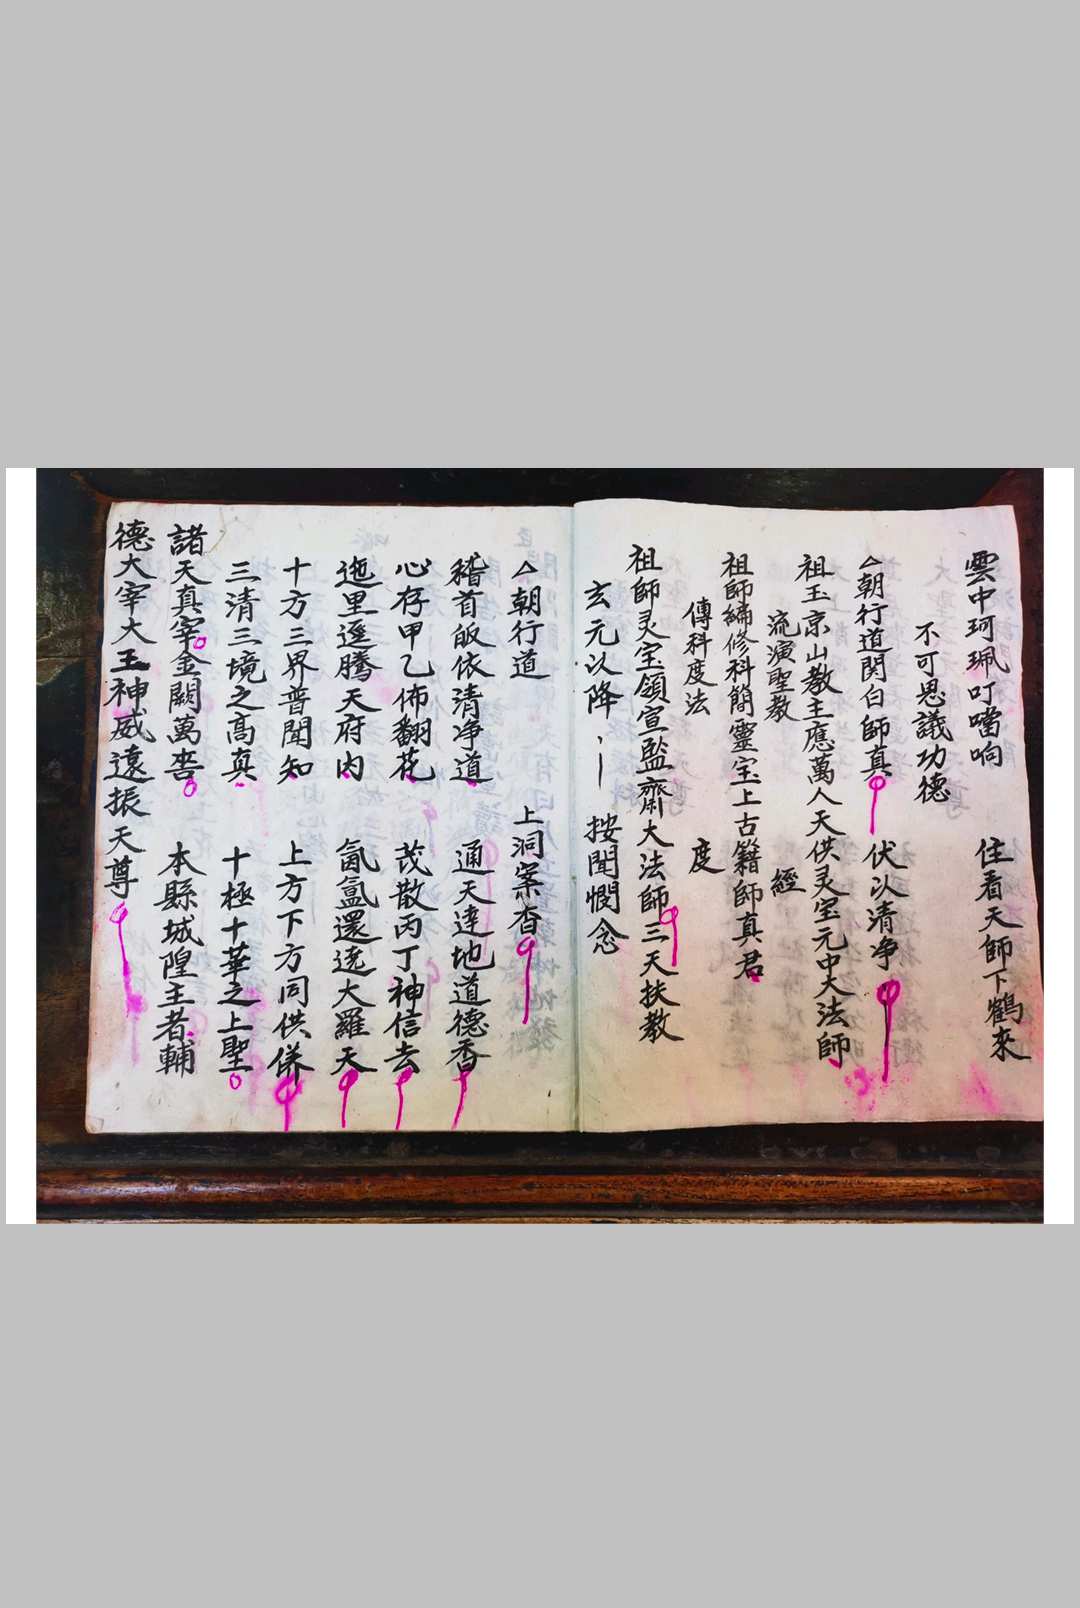 雲中珂珮叮噹响　住看天師下鶴來
不可思議功德
△朝行道関白師真　伏以清净
祖玉京山教主應萬人天供灵宝元中大法師
流演聖教　經
祖師編修科簡靈宝上古籍師真君
傳科度法　度
祖師灵宝領宣監齋大法師三天扶教
玄元以降　按聞憫念
△朝行道　上洞案香
稽首皈依清净道　通天達地道德香
心存甲乙佈翻花　茂散丙丁神信去
迤里遥騰天府内　氤氳還遶大羅天
十方三界普聞知　上方下方同供併
三清三境之高真　十極十華之上聖
諸天真宰金闕萬　本縣城隍主者輔
德大宰大王神威遠振天尊